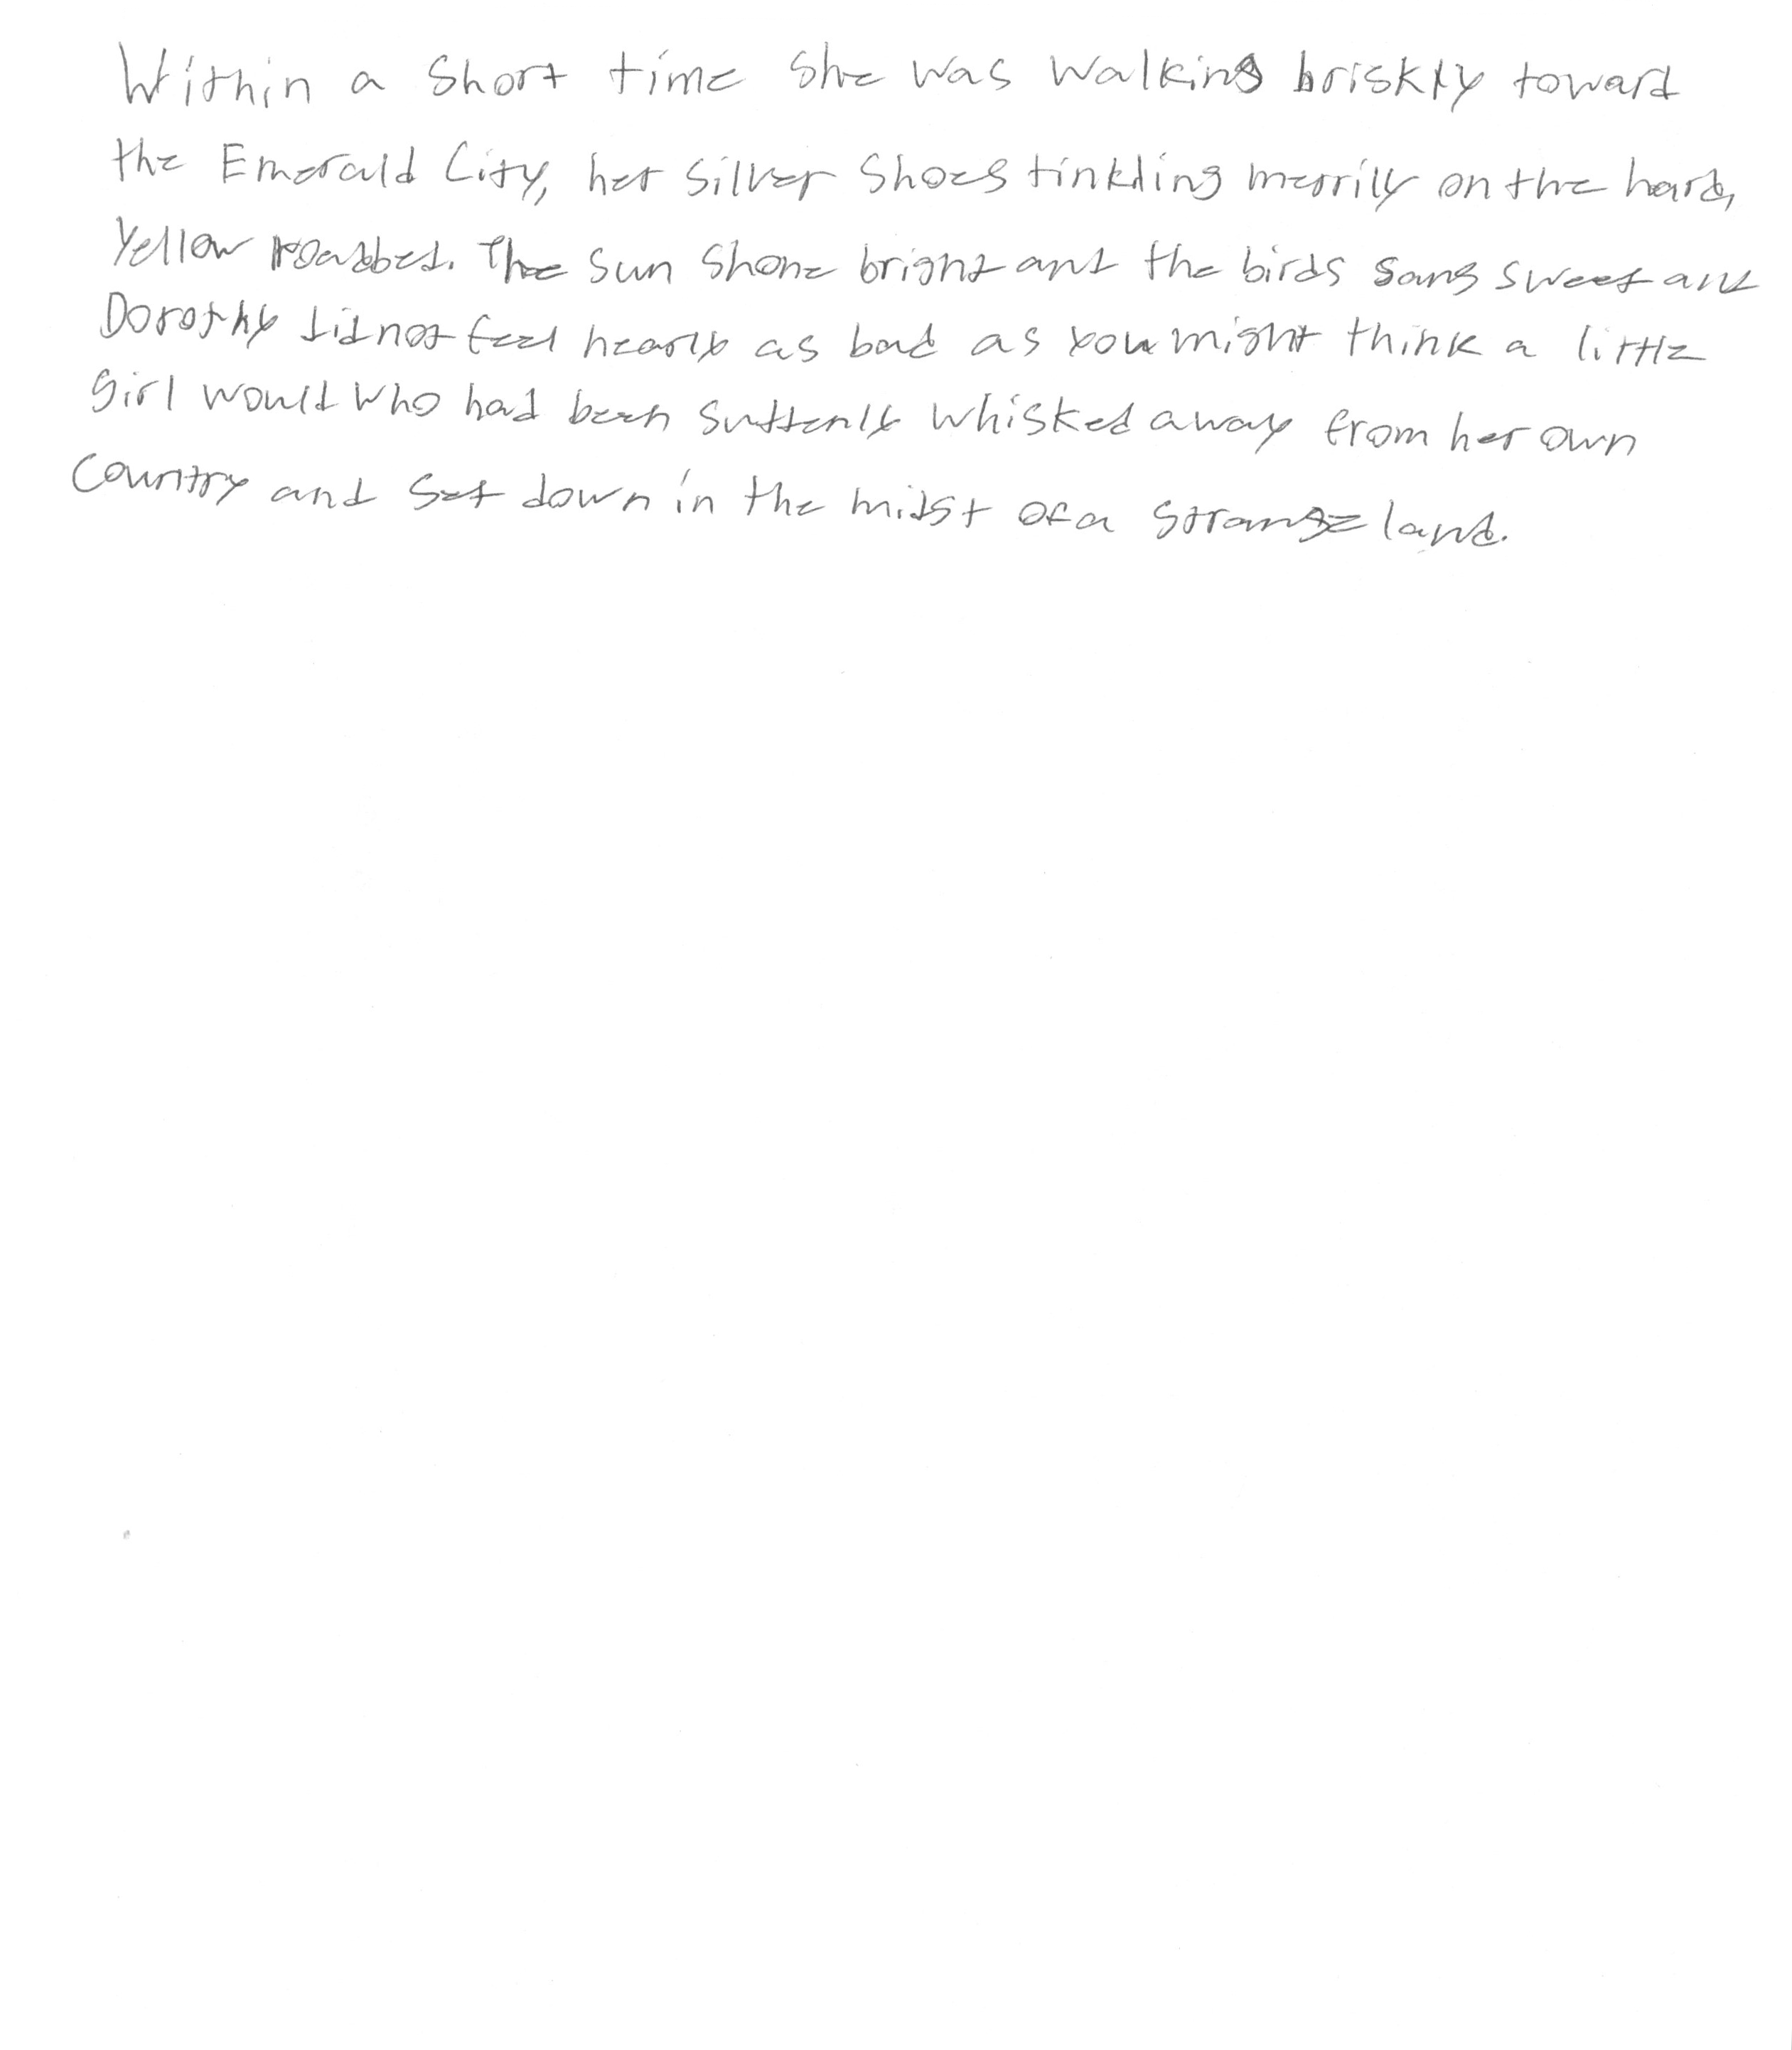 Within a short time she was walking briskly toward
the Emerald City, her silver shoes tinkling merrily on the hard,
yellow roadbed. The sun shone bright and the birds sang sweet and
Dorothy did not feel nearly as bad as you might think a little
girl would who had been suddenly whisked away from her own
country and set down in the midst of a strange land.